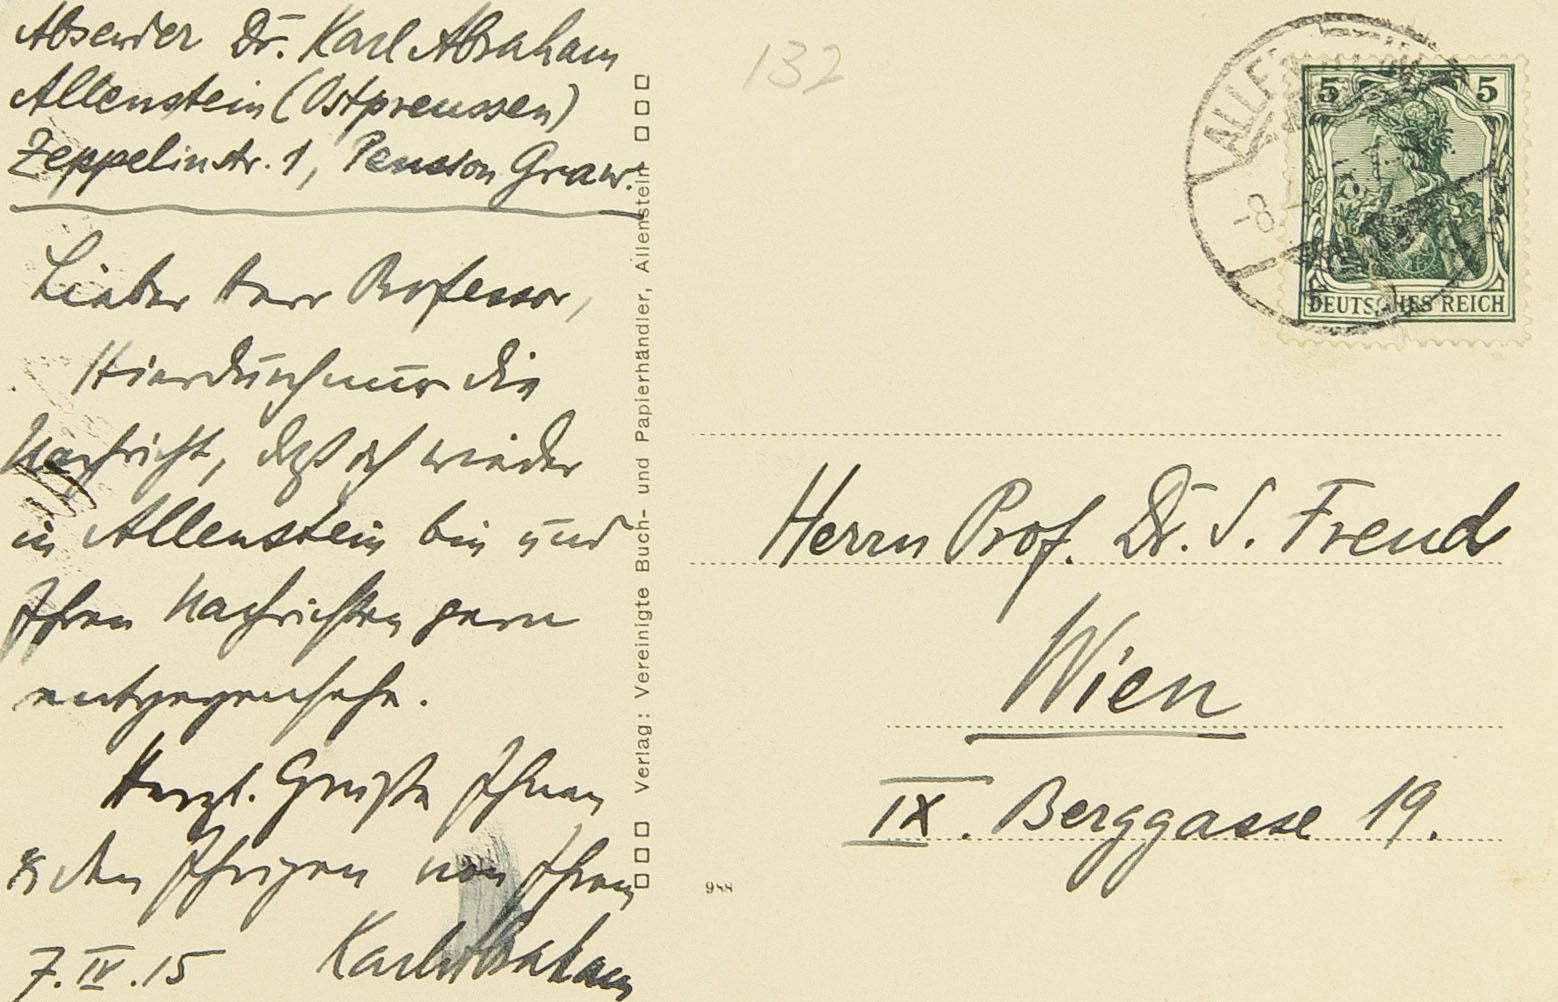 Absender Dr. Karl Abraham
Allenstein (Ostpreussen)
Zeppelinstr. 1, Pension Graw.
Lieber Herr Professor,
Hierdurch nur die
Nachricht, daß ich wieder
in Allenstein bin und
Ihren Nachrichten gern
entgegensehe.
Herzl. Grüße Ihnen
& den Ihrigen von Ihrem
Karl Abraham
7.IV.15
Verlag: Vereinigte Buch- und Papierhändler, Allenstein
132
988
ALLENSTEIN
-8
5 5
DEUTSCHES REICH
Herrn Prof. Dr. S. Freud
Wien
IX. Berggasse 19.